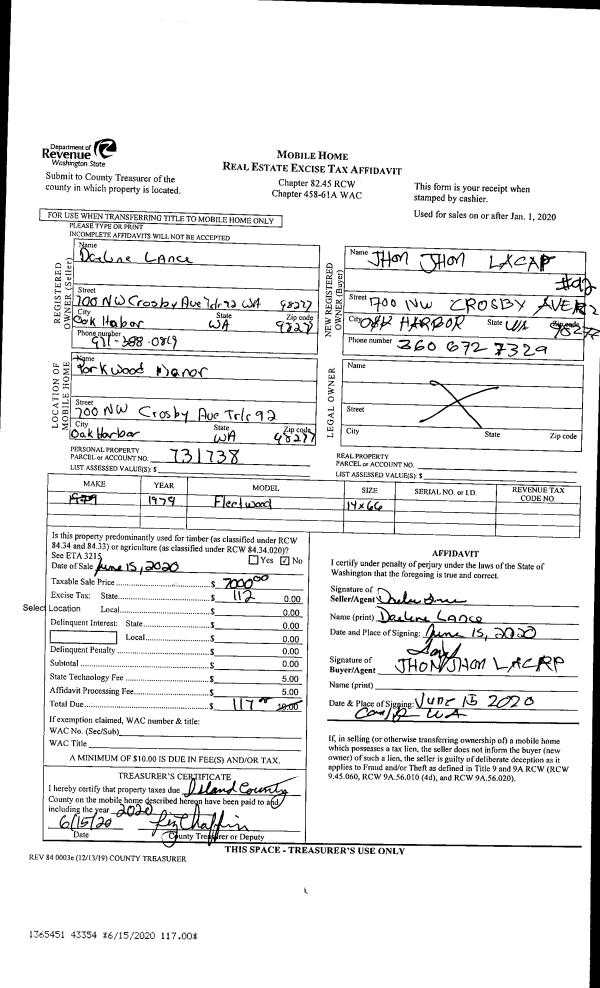 Department of
Revenue
Washington State
MOBILE HOME
REAL ESTATE EXCISE TAX AFFIDAVIT
Submit to County Treasurer of the
county in which property is located.
Chapter 82.45 RCW
Chapter 458-61A WAC
This form is your receipt when
stamped by cashier.
Used for sales on or after Jan. 1, 2020
FOR USE WHEN TRANSFERRING TITLE TO MOBILE HOME ONLY
PLEASE TYPE OR PRINT
INCOMPLETE AFFIDAVITS WILL NOT BE ACCEPTED
REGISTERED
OWNER (Seller)
Name
Darlene Lance
Street
700 NW Crosby Ave Trlr 92 WA 98277
City State Zip code
Oak Harbor WA 98277
Phone number
NEW REGISTERED
OWNER (Buyer)
Name JHON JHON LACAP
#92
Street 1700 NW CROSBY AVE
City OAK HARBOR State WA Zip code 98277
Phone number 360 672 7329
LOCATION OF
MOBILE HOME
Name
Yorkwood Manor
Street
700 NW Crosby Ave Trlr 92
City State Zip code
Oak Harbor WA 98277
LEGAL OWNER
Name
Street
City State Zip code
PERSONAL PROPERTY
PARCEL or ACCOUNT NO. 731738
LIST ASSESSED VALUE(S): $
REAL PROPERTY
PARCEL or ACCOUNT NO.
LIST ASSESSED VALUE(S): $
MAKE YEAR MODEL SIZE SERIAL NO. or I.D. REVENUE TAX CODE NO.
1979 1979 Fleetwood 14x66
Is this property predominantly used for timber (as classified under RCW
84.34 and 84.33) or agriculture (as classified under RCW 84.34.020)?
See ETA 3215 Yes No
Date of Sale June 15, 2020
Taxable Sale Price $ 7000 00
Excise Tax: State $ 112 0.00
Select Location Local $ 0.00
Delinquent Interest: State $ 0.00
Local $ 0.00
Delinquent Penalty $ 0.00
Subtotal $ 0.00
State Technology Fee $ 5.00
Affidavit Processing Fee $ 5.00
Total Due $ 117 00 10.00
If exemption claimed, WAC number & title:
WAC No. (Sec/Sub)
WAC Title
A MINIMUM OF $10.00 IS DUE IN FEE(S) AND/OR TAX.
TREASURER'S CERTIFICATE
I hereby certify that property taxes due Island County
County on the mobile home described hereon have been paid to and
including the year 2020
6/15/20 Liz Chaffin
Date County Treasurer or Deputy
AFFIDAVIT
I certify under penalty of perjury under the laws of the State of
Washington that the foregoing is true and correct.
Signature of
Seller/Agent
Name (print) Darlene Lance
Date and Place of Signing: June 15, 2020
Signature of
Buyer/Agent JHON JHON LACAP
Name (print)
Date & Place of Signing: JUNE 15 2020
WA
If, in selling (or otherwise transferring ownership of) a mobile home
which possesses a tax lien, the seller does not inform the buyer (new
owner) of such a lien, the seller is guilty of deliberate deception as it
applies to Fraud and/or Theft as defined in Title 9 and 9A RCW (RCW
9.45.060, RCW 9A.56.010 (4d), and RCW 9A.56.020).
THIS SPACE - TREASURER'S USE ONLY
REV 84 0003e (12/13/19) COUNTY TREASURER
1365451 43354 *6/15/2020 117.00*